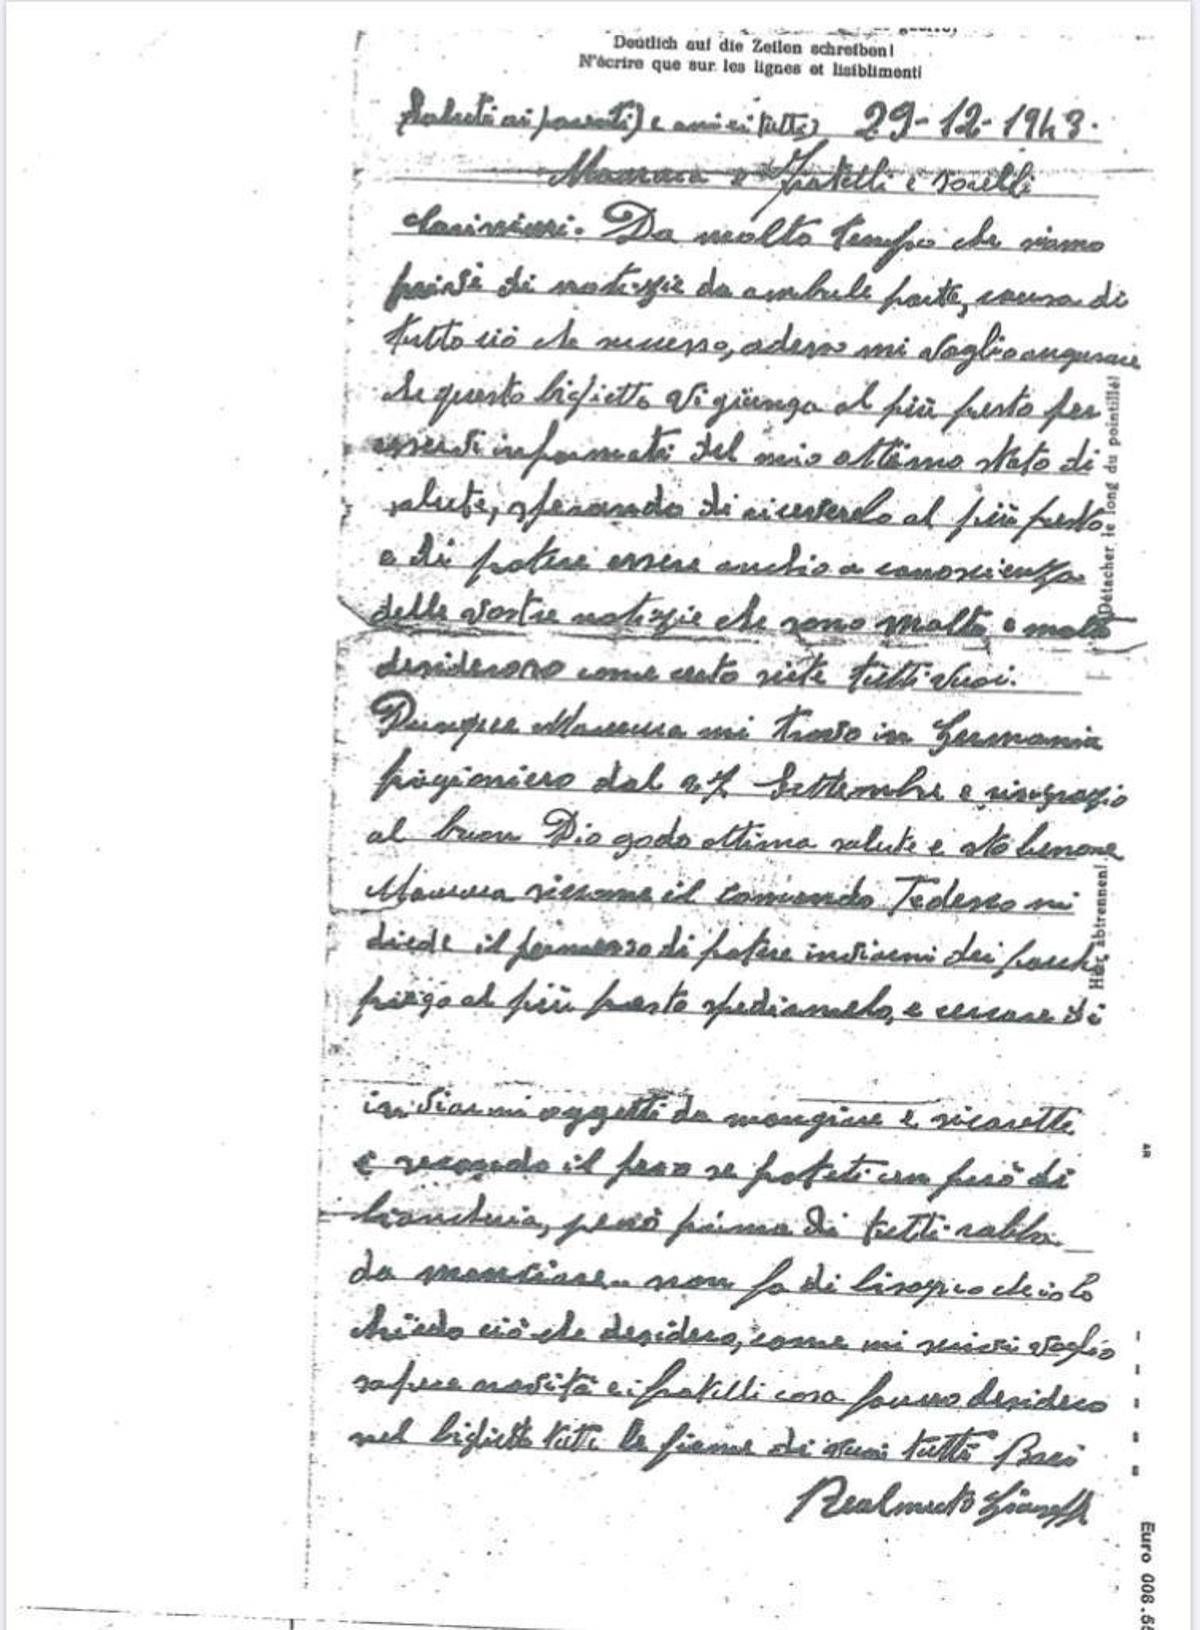 Deutlich auf die Zeilen schreiben!
N'écrire que sur les lignes et lisiblement!
Saluti ai parenti e amici tutti 29-12-1943.
Mamma e fratelli e sorelli
Carissimi. Da molto tempo che siamo
privi di notizie da ambule parte, causa di
tutto ciò che successo, adesso mi voglio augurare
che questo biglietto vi giunga al più presto per
esservi informati del mio ottimo stato di
salute, sperando di riceverlo al più presto
e di potere essere anchio a conoscienza
delle vostre notizie che sono molto e molto
desideroso come certo siete tutti vuoi.
Dunque Mamma mi trovo in Germania
prigioniero dal 27 Settembre e ringrazio
al buon Dio godo ottima salute e sto benone
Mamma siccome il comando Tedesco mi
diede il permesso di potere inviarmi dei pacchi
priego al più presto spediamelo, e cercare di
inviarmi oggetti da mangiare e sicarette
e secondo il peso se poteti un puo di
biancheria, però prima di tutti rabba
da manciare.. non fa di bisogno che io lo
chiedo ciò che desidero, come mi scrivi voglio
sapere novità e i fratelli cosa fanno desidero
nel biglietto tutti le firme di vuoi tutti Baci
Realmuto Giuseppe
Détacher le long du pointillé!
Hier abtrennen!
AR
Euro 006.55